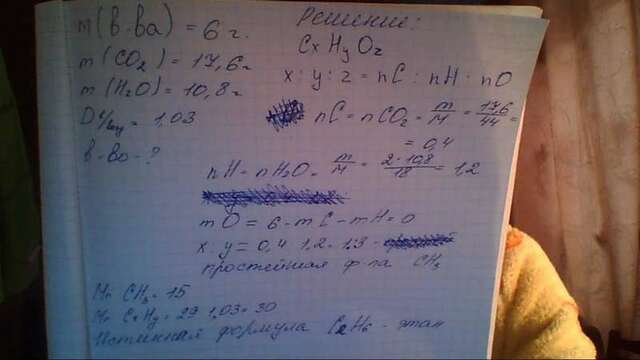 m(в-ва) = 6 г.
m(CO2) = 17,6 г
m(H2O) = 10,8 г
D г/воз = 1,03
в-во - ?
Решение:
CxHyOz
x : y : z = nC : nH : nO
nC = nCO2 = m/M = 17,6/44 =
= 0,4
nH = nH2O = m/M = 2·10,8/18 = 1,2
mO = 6 - mC - mH = 0
x : y = 0,4 : 1,2 = 1:3 -
простейшая ф-ла CH3
Mr CH3 = 15
Mr CxHy = 29·1,03 = 30
Истинная формула C2H6 - этан